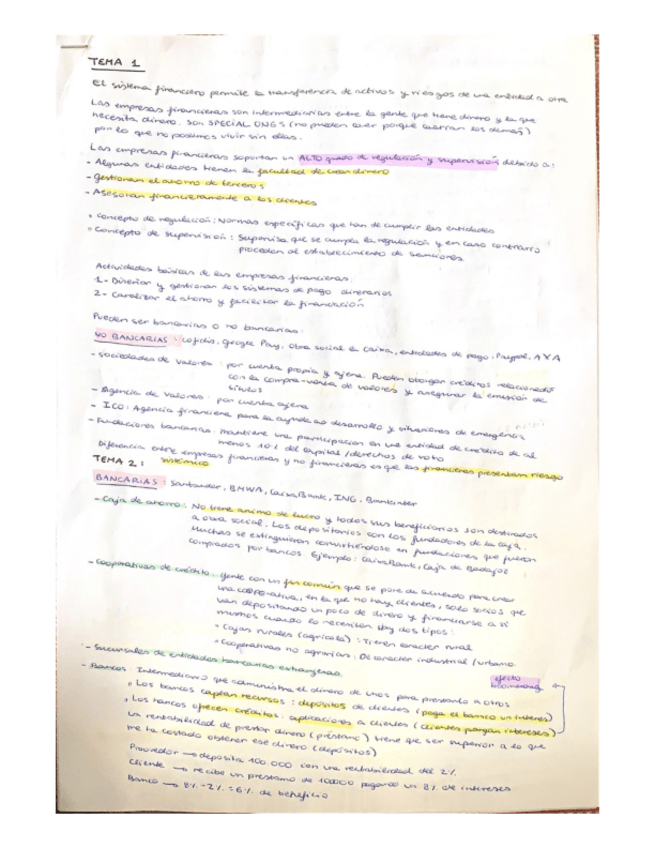 TEMA 1
El sistema financiero permite la transferencia de activos y riesgos de una entidad a otra
Las empresas financieras son intermediarias entre la gente que tiene dinero y la que
necesita dinero. Son SPECIAL ONGS (no pueden caer porque caerían los demás)
por lo que no podemos vivir sin ellas.
Las empresas financieras soportan un ALTO grado de regulación y supervisión debido a:
- Algunas entidades tienen la facultad de crear dinero
- Gestionan el ahorro de terceros
- Asesoran financieramente a los clientes
• Concepto de regulación: Normas específicas que han de cumplir las entidades
• Concepto de supervisión: Supervisa que se cumpla la regulación y en caso contrario
proceden al establecimiento de sanciones
Actividades básicas de las empresas financieras:
1- Diseñar y gestionar los sistemas de pago dinerarios
2- Canalizar el ahorro y facilitar la financiación
Pueden ser bancarias o no bancarias:
NO BANCARIAS: Cofidis, Google Pay, Obra social la Caixa, entidades de pago, Paypal, AXA
- Sociedades de valores: por cuenta propia y ajena. Pueden otorgar créditos relacionados
con la compra-venta de valores y asegurar la emisión de
títulos
- Agencia de valores: por cuenta ajena
- ICO: Agencia financiera para la ayuda al desarrollo y situaciones de emergencia
- Fundaciones bancarias: mantiene una participación en una entidad de crédito de al
menos 10% del capital / derechos de voto
Diferencia entre empresas financieras y no financieras es que las financieras presentan riesgo
sistémico
TEMA 2:
BANCARIAS: Santander, BMWA, CaixaBank, ING, Bankinter
- Caja de ahorro: No tiene ánimo de lucro y todos sus beneficiarios son destinados
a obra social. Los depositarios son los fundadores de la caja.
Muchas se extinguieron convirtiéndose en fundaciones que fueron
compradas por bancos. Ejemplo: CaixaBank, Caja de Badajoz
- Cooperativas de crédito: gente con un fin común que se pone de acuerdo para crear
una cooperativa, en la que no hay clientes, solo socios que
van depositando un poco de dinero y financiarse a sí
mismos cuando lo necesiten. Hay dos tipos:
• Cajas rurales (agrícola): Tienen carácter rural
• Cooperativas no agrarias: De carácter industrial / urbano
- Sucursales de entidades bancarias extranjeras
efecto
boomerang
- Bancos: Intermediario que administra el dinero de unos para prestarlo a otros
• Los bancos captan recursos: depósitos de clientes (paga el banco un interés)
• Los bancos ofrecen créditos: aplicaciones a clientes (clientes pagan intereses)
La rentabilidad de prestar dinero (préstamo) tiene que ser superior a lo que
me ha costado obtener ese dinero (depósitos)
Proveedor → deposita 100.000 con una rentabilidad del 2%
Cliente → recibe un préstamo de 100000 pagando un 8% de intereses
Banco → 8% - 2% = 6% de beneficio